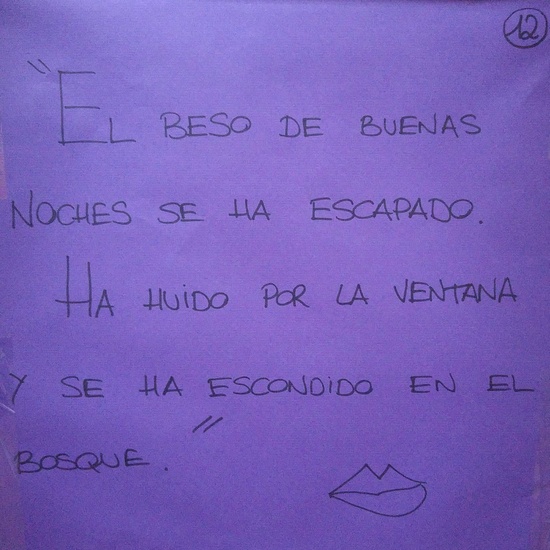 12
"EL BESO DE BUENAS
NOCHES SE HA ESCAPADO.
HA HUIDO POR LA VENTANA
Y SE HA ESCONDIDO EN EL
BOSQUE."